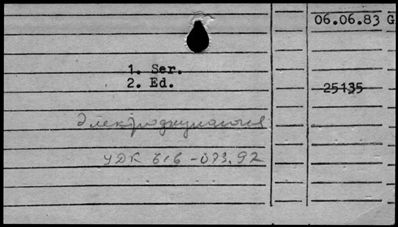 06.06.83 G
1. Ser.
2. Ed.
25135
Электродиагност
УДК 616-073.92